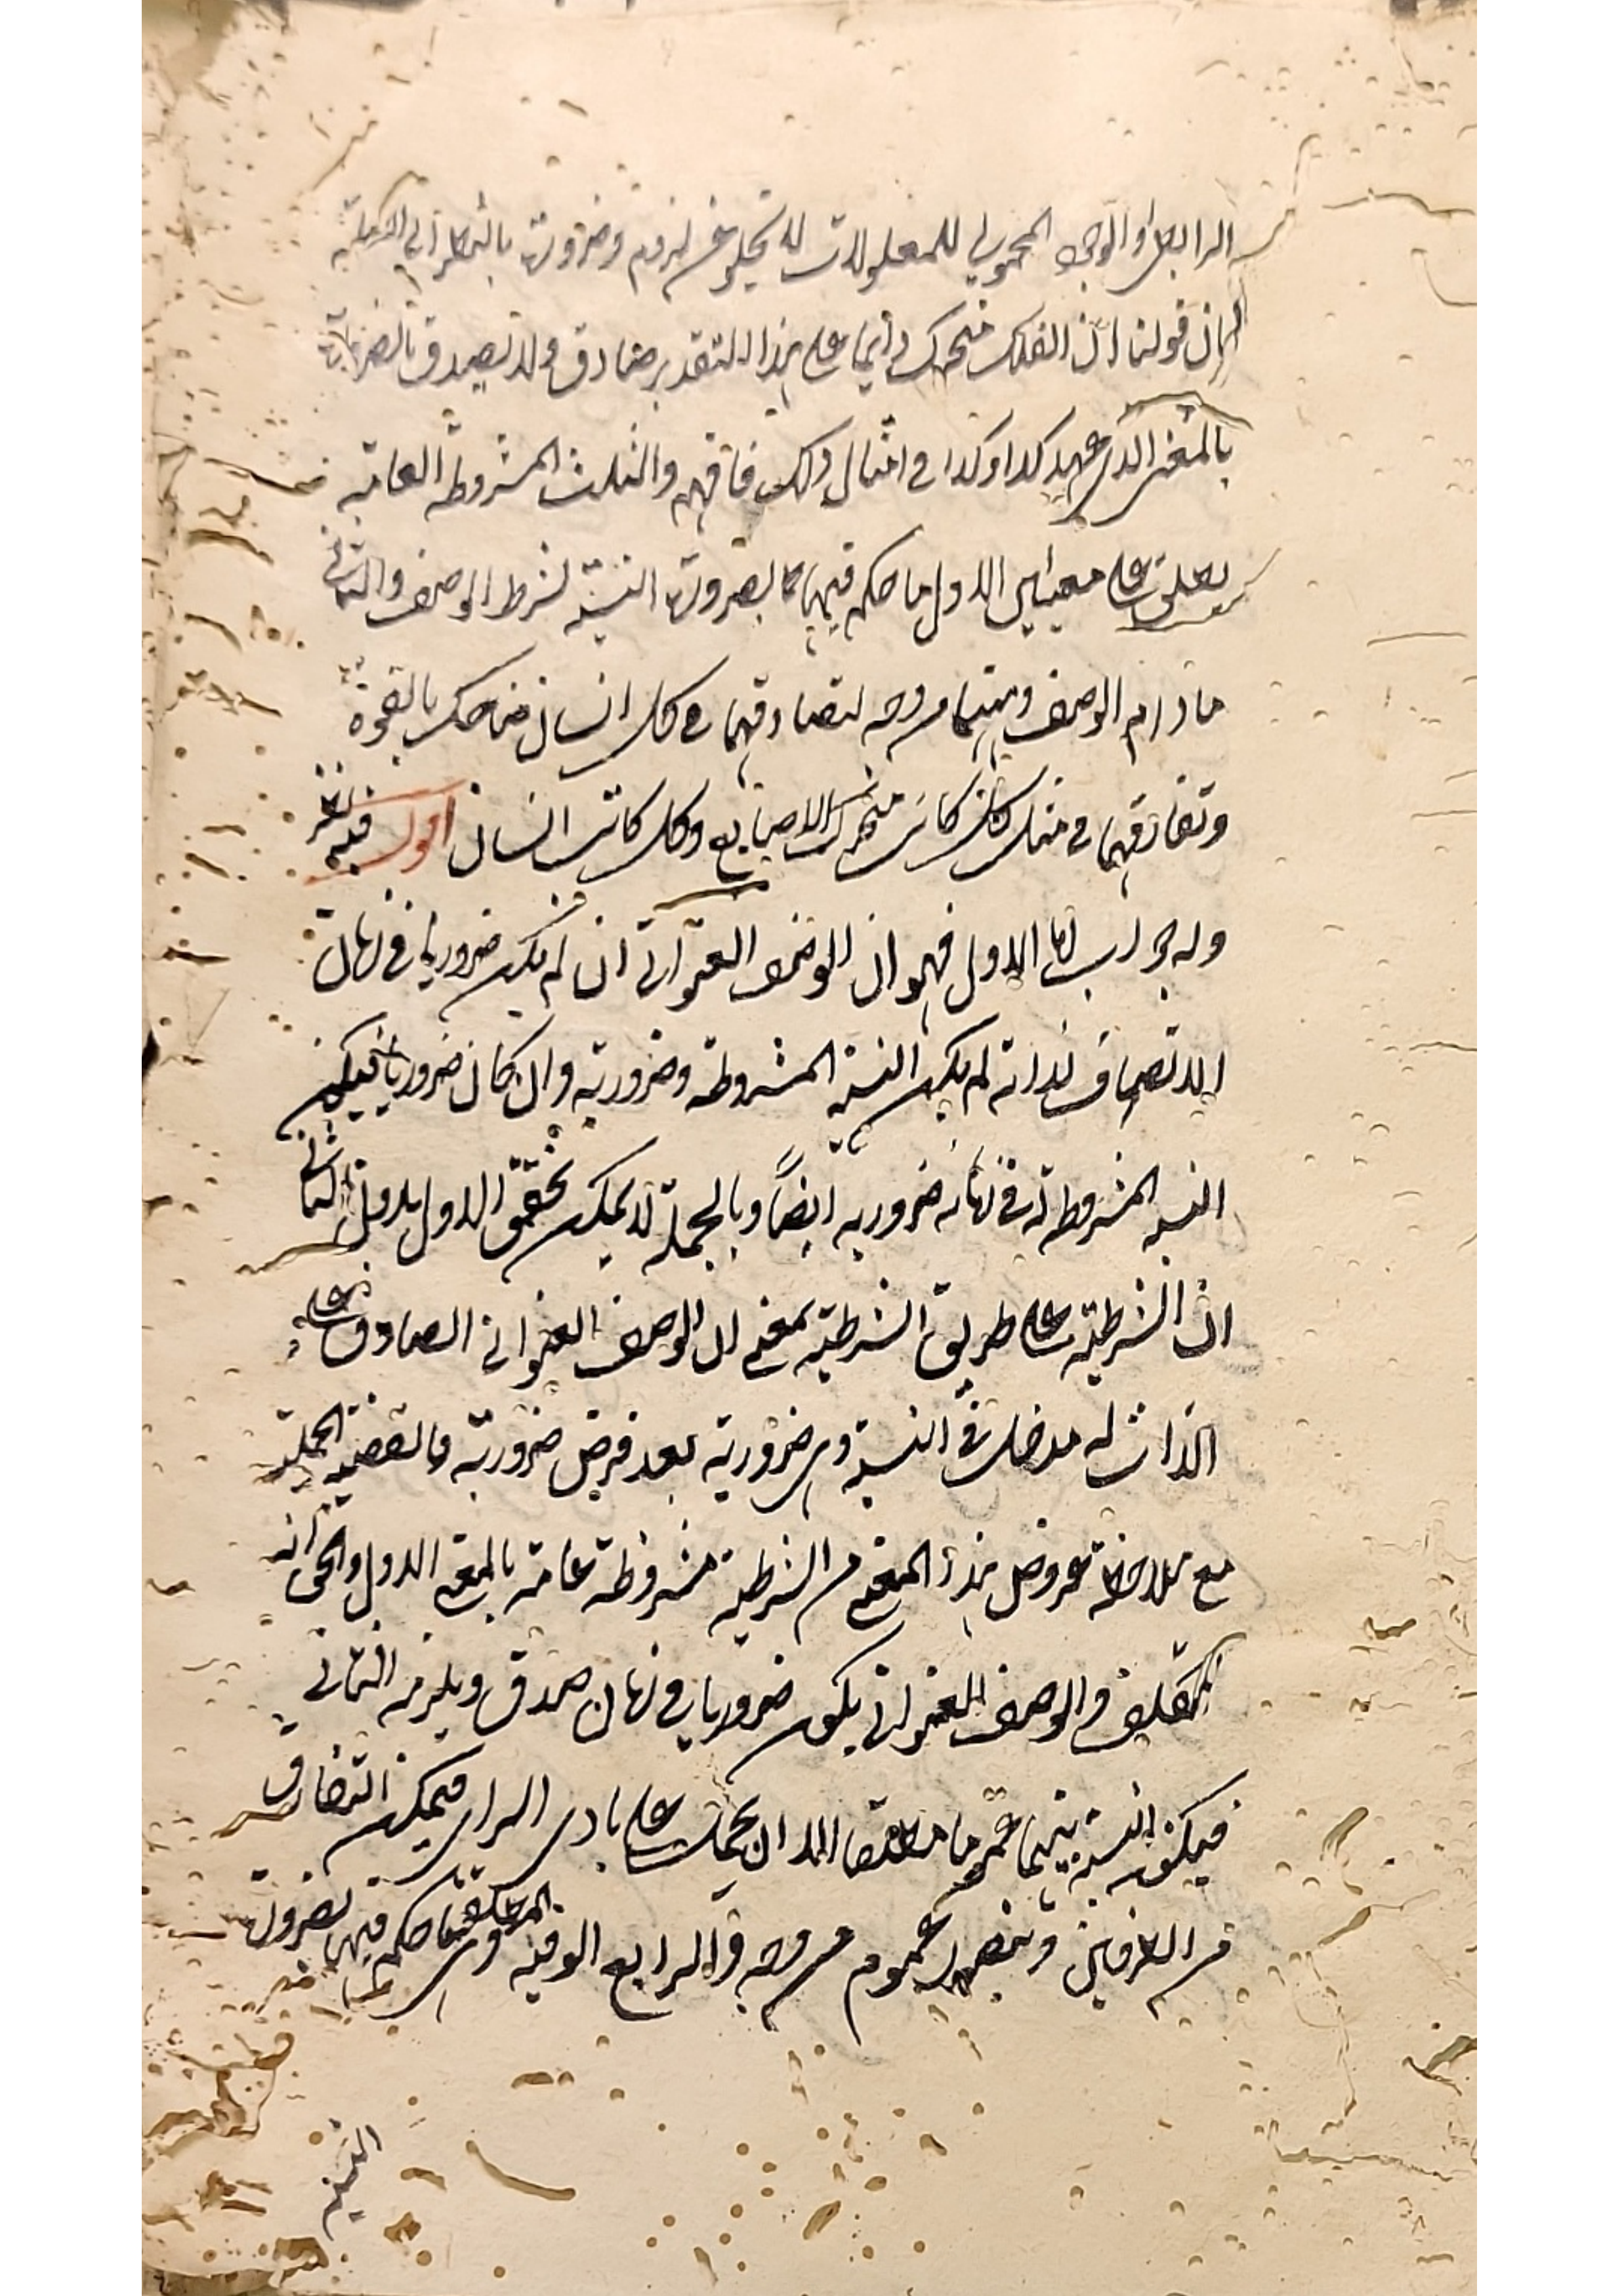 الرابطي والوجود المحمولي للمعلولات لا تخلو عن لزوم وضرورة بالنظر الى العلة
لان قولنا ان الفلك متحرك دائما على هذا التقدير صادق ولا تصدق الضرورية
بالمعنى الذي عهد كذا وكذا في امثال ذلك فافهم والثالث المشروطة العامة
يطلق على معنيين الاول ما حكم فيها بضرورة النسبة بشرط الوصف والثاني
مادام الوصف وبينهما من وجه لتصادقهما في كل انسان ضاحك بالقوة
وتفارقهما في مثل كل كاتب متحرك الاصابع وكل كاتب انسان اقول فيه نظر
وله جواب اما الاول فهو ان الوصف العنواني ان لم يكن ضروريا في زمان
الاتصاف لذاته لم يكن النسبة المشروطة وضرورية وان كان ضروريا فيكون
النسبة المشروطة في زمانه ضرورية ايضاً وبالجملة لا يمكن تحقق الاول بدون الثاني
ان الشرطية على طريق الشرطية بمعنى ان الوصف العنواني الصادق على
الذات له مدخل في النسبة وهي ضرورية بعد فرض ضرورية فالقضية الحملية
مع ملاحظة عروض هذا المعنى من الشرطية مشروطة عامة بالمعنى الاول والحق انه
في الوصف العنواني يكون ضروريا في زمان صدق ويلزمه الثاني
فيكون النسبة بينهما عموما مطلقا الا ان يحمل على بادى الراى فيمكن التفارق
من الطرفين ويتصور عموم من وجه والرابع الوقتية المطلقة وهي ما حكم فيها بضرورة
النسبة